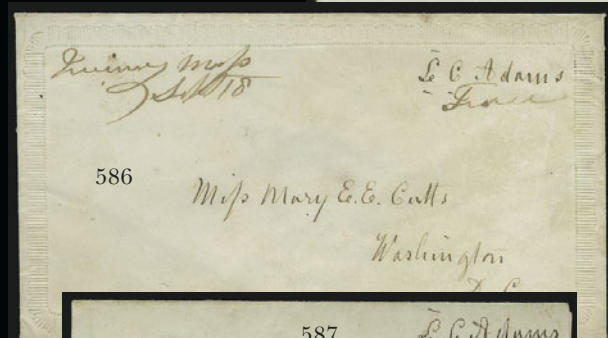 Quincy Mass
Sept 18
L C Adams
Free
586
Miss Mary E. E. Cutts
Washington
D C
587
L C Adams